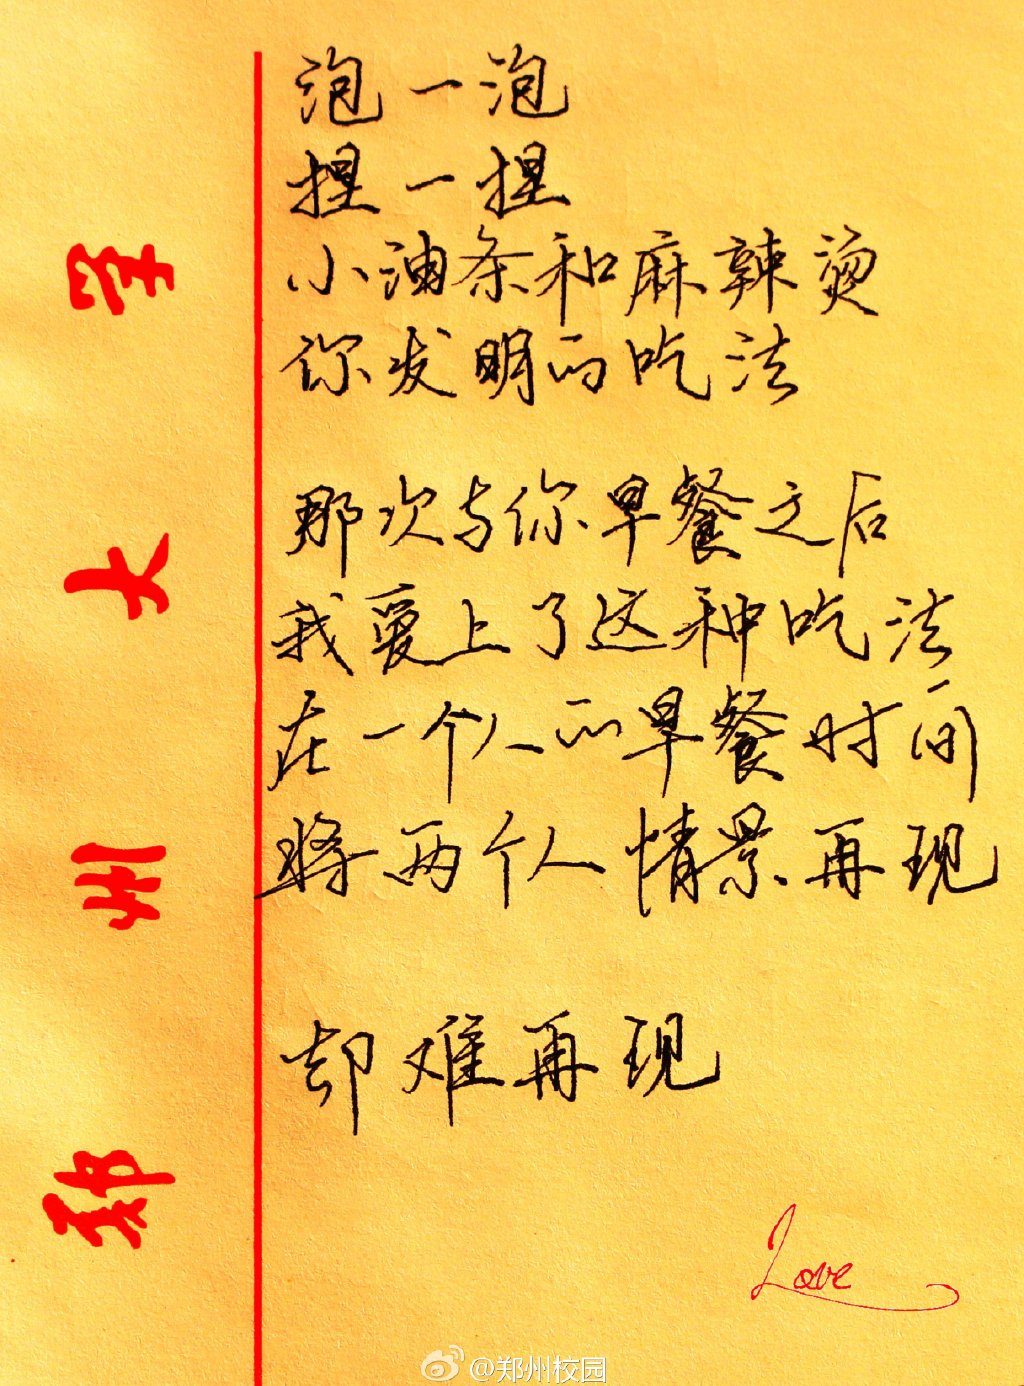 泡一泡
捏一捏
小油条和麻辣烫
你发明的吃法
那次与你早餐之后
我爱上了这种吃法
在一个人的早餐时间
将两个人情景再现
却难再现
郑州大学
Love
@郑州校园